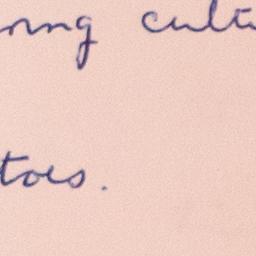 ning cultu
toes.